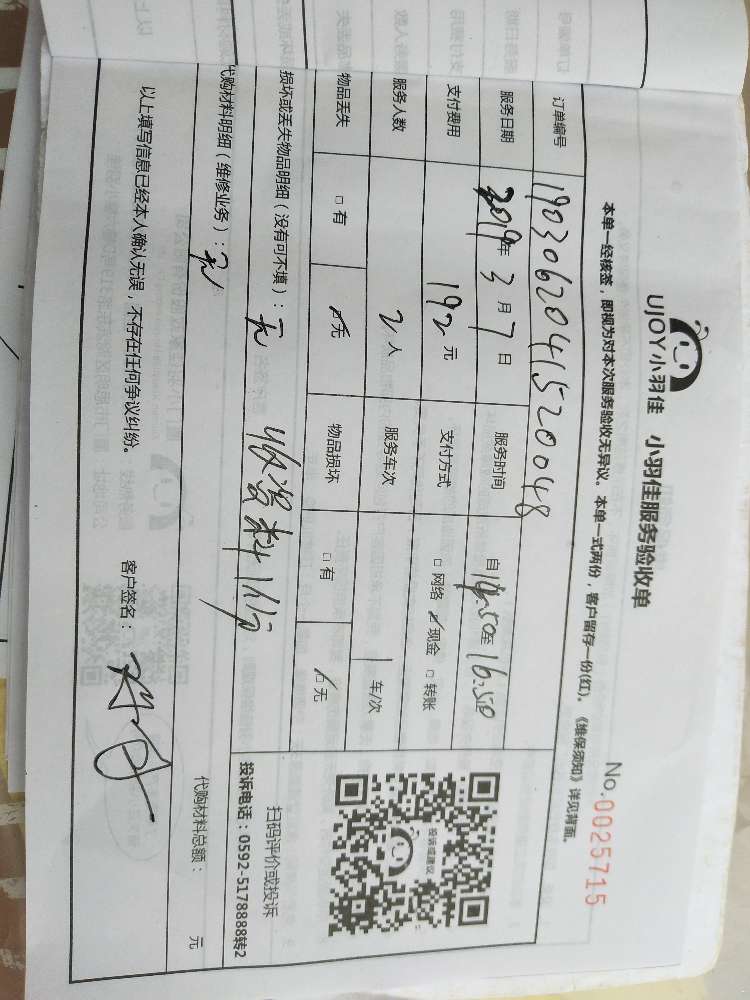 UJOY小羽佳 小羽佳服务验收单
No.0025715
本单一经核签，即视为对本次服务验收无异议。本单一式两份，客户留存一份(红)。《维保须知》详见背面。
订单编号 19030620415200048
服务日期 2019年3月7日 服务时间 自14:50至16:50
支付费用 192元 支付方式 □网络 ☑现金 □转账
服务人数 2人 服务车次 1车/次
物品丢失 □有 ☑无 物品损坏 □有 ☑无
损坏或丢失物品明细（没有可不填）：无 收资料1份
扫码评价或投诉
投诉电话：0592-5178888转2
投诉或建议
UJOY
代购材料明细（维修业务）：无 代购材料总额： 元
以上填写信息已经本人确认无误，不存在任何争议纠纷。 客户签名：